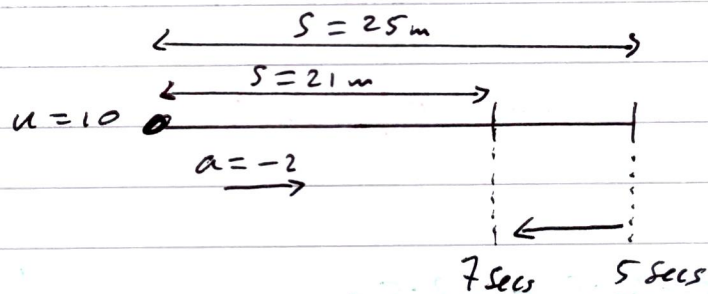 S = 25m
S = 21m
u = 10
a = -2
7 secs 5 secs